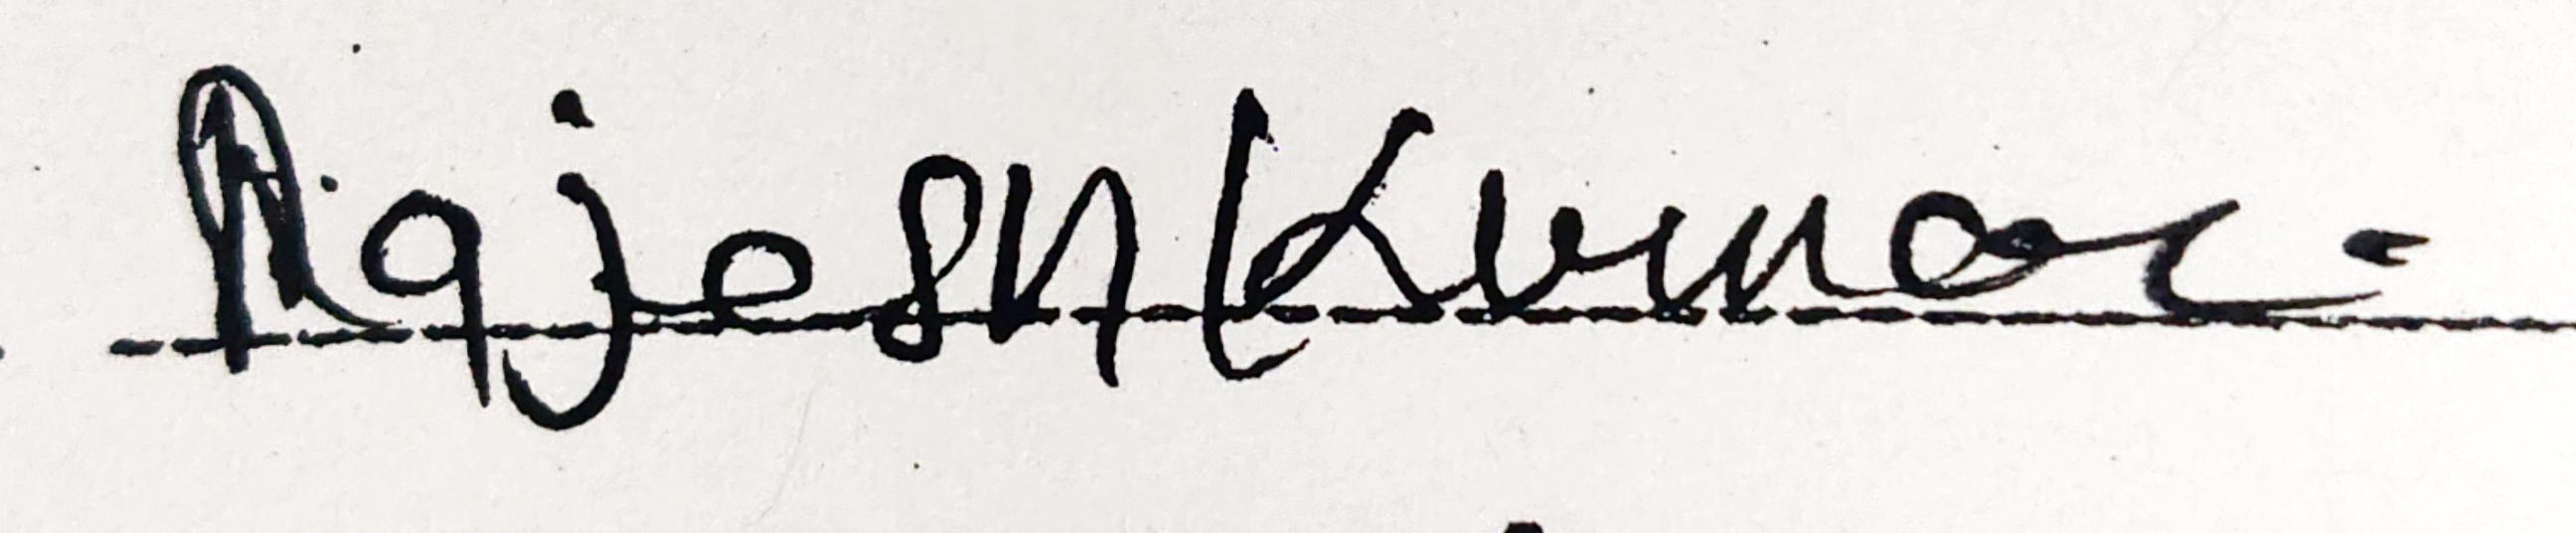 Rajesh Kumar.